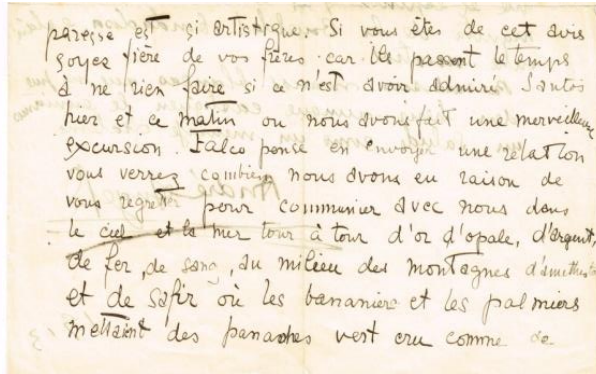 paresse est si artistique. Si vous êtes de cet avis
soyez fière de vos frères car ils passent le temps
à ne rien faire si ce n'est avoir admiré Santos
hier et ce matin ou nous avons fait une merveilleuse
excursion. Falco pense en envoyer une relation
vous verrez combien nous avons eu raison de
vous regretter pour communier avec nous dans
le ciel et la mer tour à tour d'or d'opale, d'argent,
de fer, de sang, au milieu des montagnes d'améthiste
et de safir où les bananiers et les palmiers
mettaient des panaches vert cru comme de